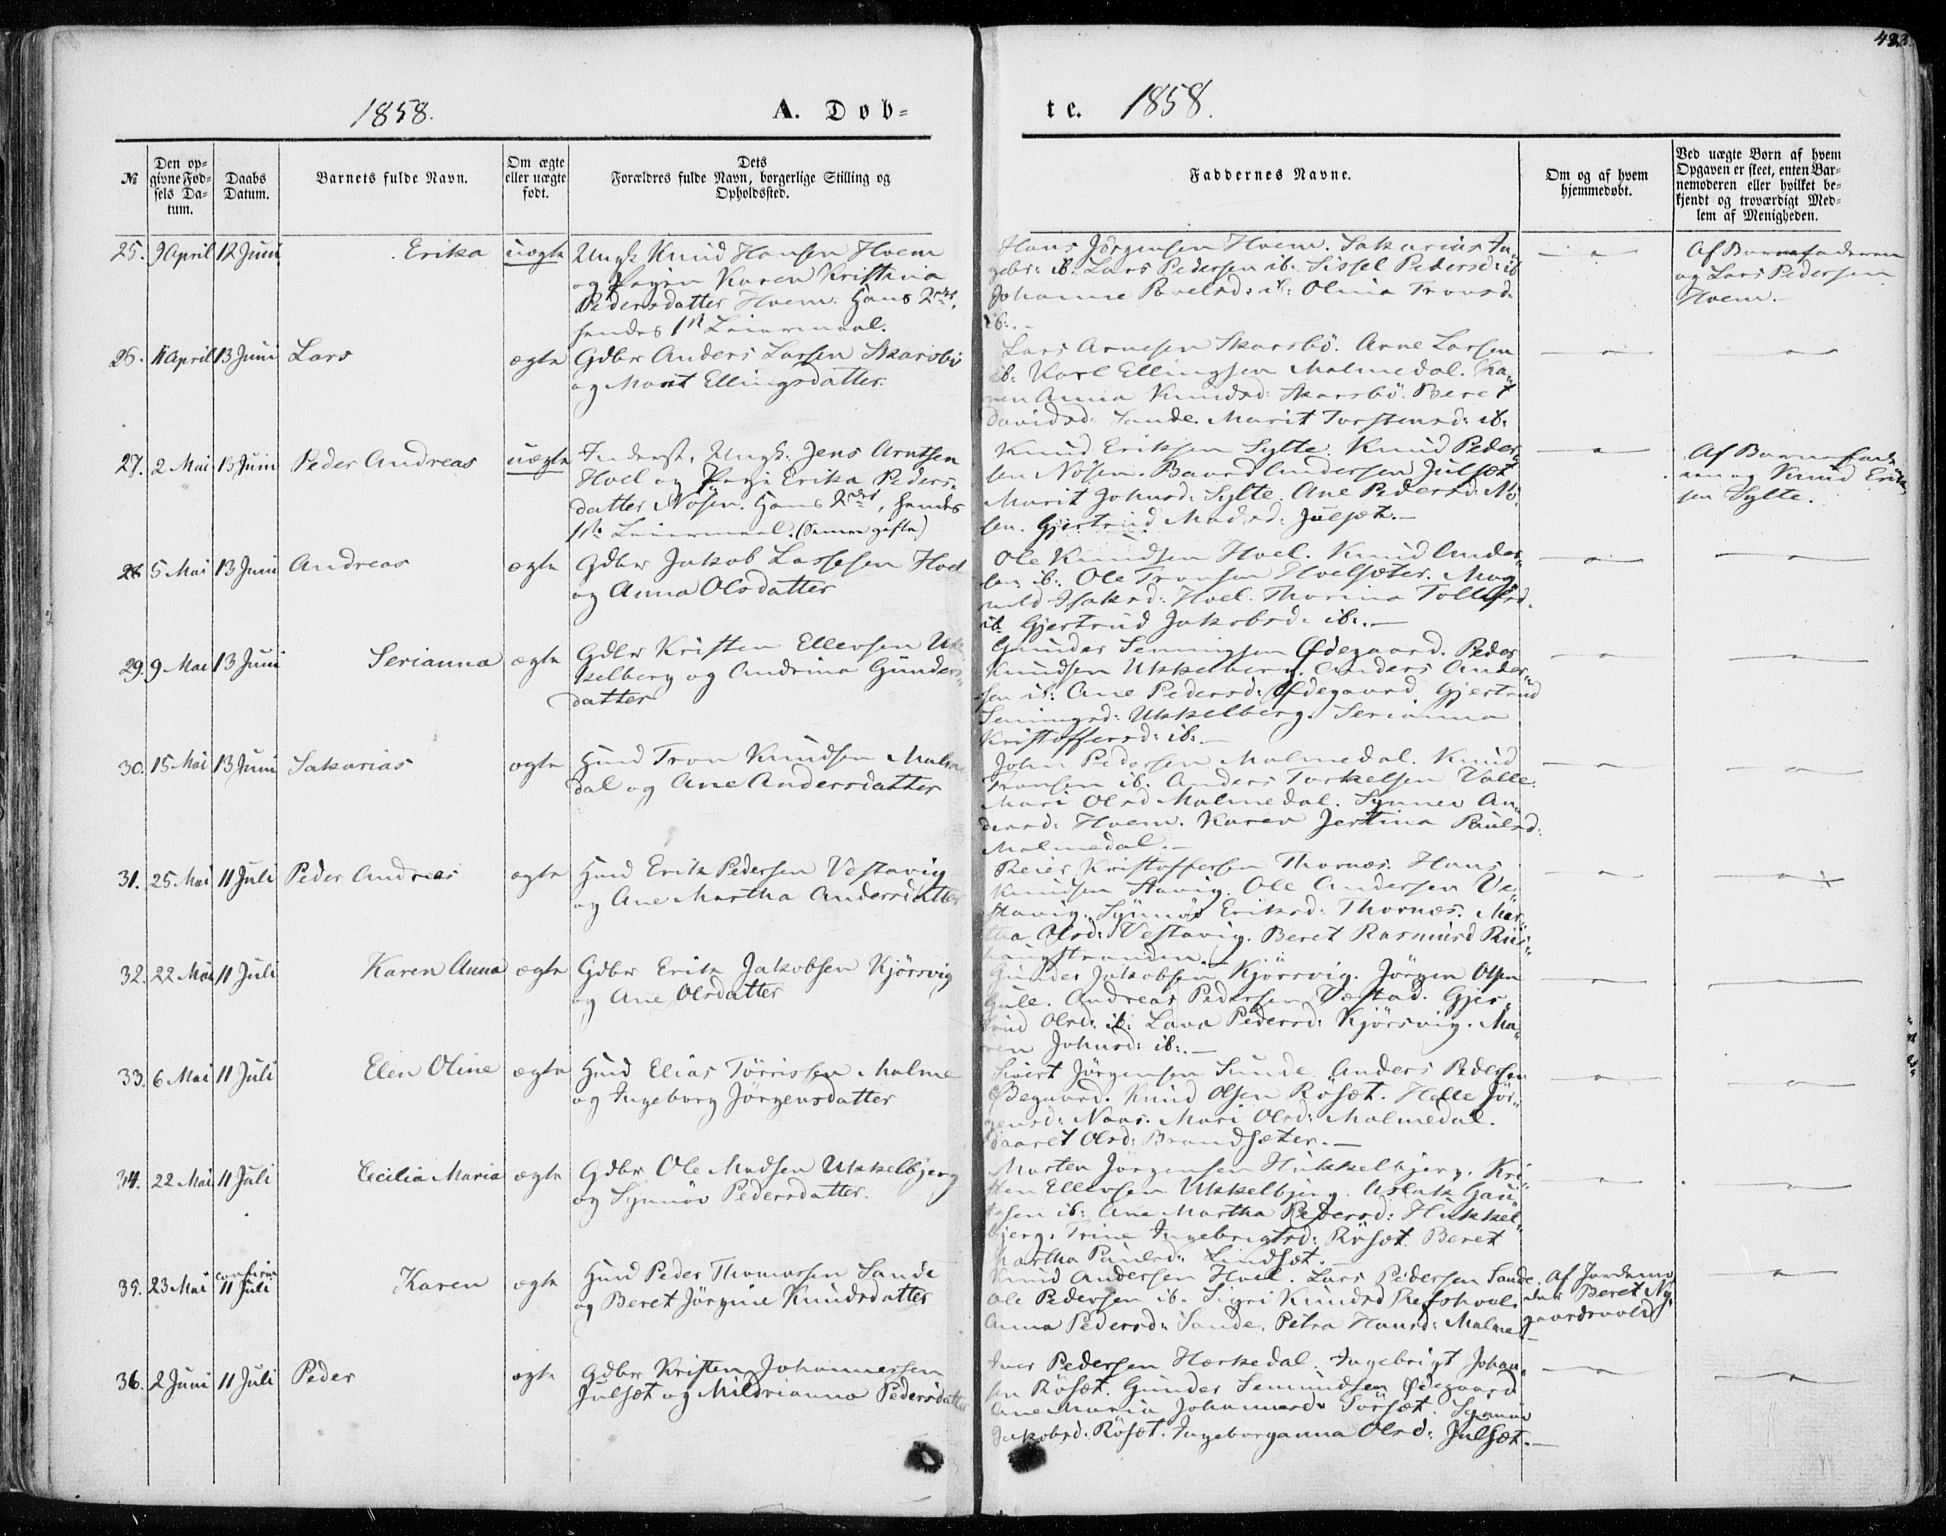 483.
1858.
A. Døb=
te. 1858.
№
Den op=
givne Fød=
sels Da=
tum.
Daabs
Datum.
Barnets fulde Navn.
Om ægte
eller uægte
født.
Dets
Forældres fulde Navn, borgerlige Stilling og
Opholdssted.
Faddernes Navne.
Om og af hvem
hjemmedøbt.
Ved uægte Børn af hvem
Opgaven er skeet, enten Bar=
nemoderen eller hvilket be=
kjendt og troværdigt Med=
lem af Menigheden.
25. 9 April 12 Juni Erika uægte Ungk Knud Hansen Hoem
og Pigen Karen Kristina
Pedersdatter Hoem. Hans 2det,
hendes 1ste Leiermaal.
Hans Jörgensen Hoem. Sakarias In=
gebr: ib. Lars Pedersen ib: Sissel Pedersd: ib
Johanne Povelsd: ib: Olina Tronsd:
ib:.-
Af Barnefaderen
og Lars Pedersen
Hoem.-
26. 11 April 13 Juni Lars ægte Gdbr Anders Larsen Skarsbö
og Marit Ellingsdatter.
Lars Arnesen Skarsbö. Arne Larsen
ib: Karl Ellingsen Malmedal. Ka=
ren Anna Knudsd: Skarsbö. Beret
Davidsd: Sande. Marit Torstensd: ib.
27. 2 Mai 13 Juni Peder Andreas uægte Inderst, Ungk: Jens Arntsen
Hoel og Pige Erika Peders=
datter Nösen. Hans 2det, hendes
1ste Leiermaal. (Senere gifte)
Knud Eriksen Sylte. Knud Peder=
sen Nösen. Baard Andersen Julset
Marit Johnsd: Sylte. Ane Pedersd: Nö=
sen. Gjertrud Madsd: Julset.-
Af Barnefade
ren og Knud Erik
sen Sylte.
28 5 Mai 13 Juni Andreas ægte Gdbr Jakob Lassesen Hoel
og Anna Olsdatter
Ole Knudsen Hoel. Knud Ander=
sen ib: Ole Tronsen Hoelsæter. Mag=
nild Isaksd: Hoel. Thorina Tollefsd.
ib. Gjertrud Jakobsd: ib:.-
29. 9 Mai 13 Juni Serianna ægte Gdbr Kristen Ellevsen Uk=
kelberg og Andrina Gunders=
datter
Gunder Semingsen Ødegaard. Peder
Knudsen Ukkelberg. Anders Ander=
sen ib: Ane Pedersd: Ødegaard. Gjertrud
Semingsd: Ukkelberg. Serianna
Kristoffersd: ib:-
30. 15 Mai 13 Juni Sakarias ægte Husd Tron Knudsen Malme
dal og Ane Andersdatter
John Pedersen Malmedal. Knud
Tronsen ib: Anders Torkelsen Valle.
Mari Olsd Malmedal. Synnev An=
dersd: Hoem. Karen Jertina Paulsd:
Malmedal.-
31. 25 Mai 11 Juli Peder Andreas ægte Husd Erik Pedersen Vestavig
og Ane Martha Andersdatter
Reier Kristoffersen Thornæs. Hans
Knudsen Havig. Ole Andersen Ve=
stavig. Synnöv Eriksd: Thornæs. Mar=
tha Olsd: Vestavig. Beret Rasmusd
32. 22 Mai 11 Juli Karen Anna ægte Gdbr Erik Jakobsen Kjörsvig
og Ane Olsdatter
Gunder Jakobsen Kjörsvig. Jörgen Olsen
Gule. Andreas Pedersen Vestad. Gjer=
trud Olsd: ib: Lava Pedersd: Kjörsvig. Ma=
ren Johnsd: ib:.-
33. 6 Mai 11 Juli Elen Oline ægte Husd Elias Törrissen Malme
og Ingeborg Jörgensdatter
Sivert Jörgensen Sunde. Anders Pedersen
Øegaard. Knud Olsen Rösæt. Helle Jör=
gensd: Naas. Mari Olsd: Malmedal.
Baaret Olsd: Brandsæter.-
34. 22 Mai 11 Juli Cecilia Maria ægte Gdbr Ole Madsen Ukkelbjerg
og Synnöv Pedersdatter.
Morten Jörgensen Hukkelbjerg. Kri=
sten Ellevsen Ukkelbjerg. Aslak Gau=
tesen ib: Ane Martha Pedersd: Hukkel=
bjerg. Trine Ingebrigtsd: Rösæt. Beret
Martha Paulsd: Lindsæt.
35. 23 Mai confirm 11 Juli Karen ægte Husd Peder Thomassen Sande
og Beret Jörgine Knudsdatter
Knud Andersen Hoel. Lars Pedersen Sande.
Ole Pedersen ib. Sigri Knudsd
Anna Pedersd: Sande. Petra Hansd: Malme.
Af Jordemo
der Beret Ny=
gaardsvold
36. 2 Juni 11 Juli Peder ægte Gdbr Kristen Johannessen
Julsæt og Mildrianna Pedersdatter
Iver Pedersen Hærkedal. Ingebrigt Johan=
sen Rösæt. Gunder Semundsen Ødegaard
Ane Maria Johannesd: Törsæt. Synnöv
Jakobsd: Rösæt. Ingeborganna Olsd: Julsæt.-